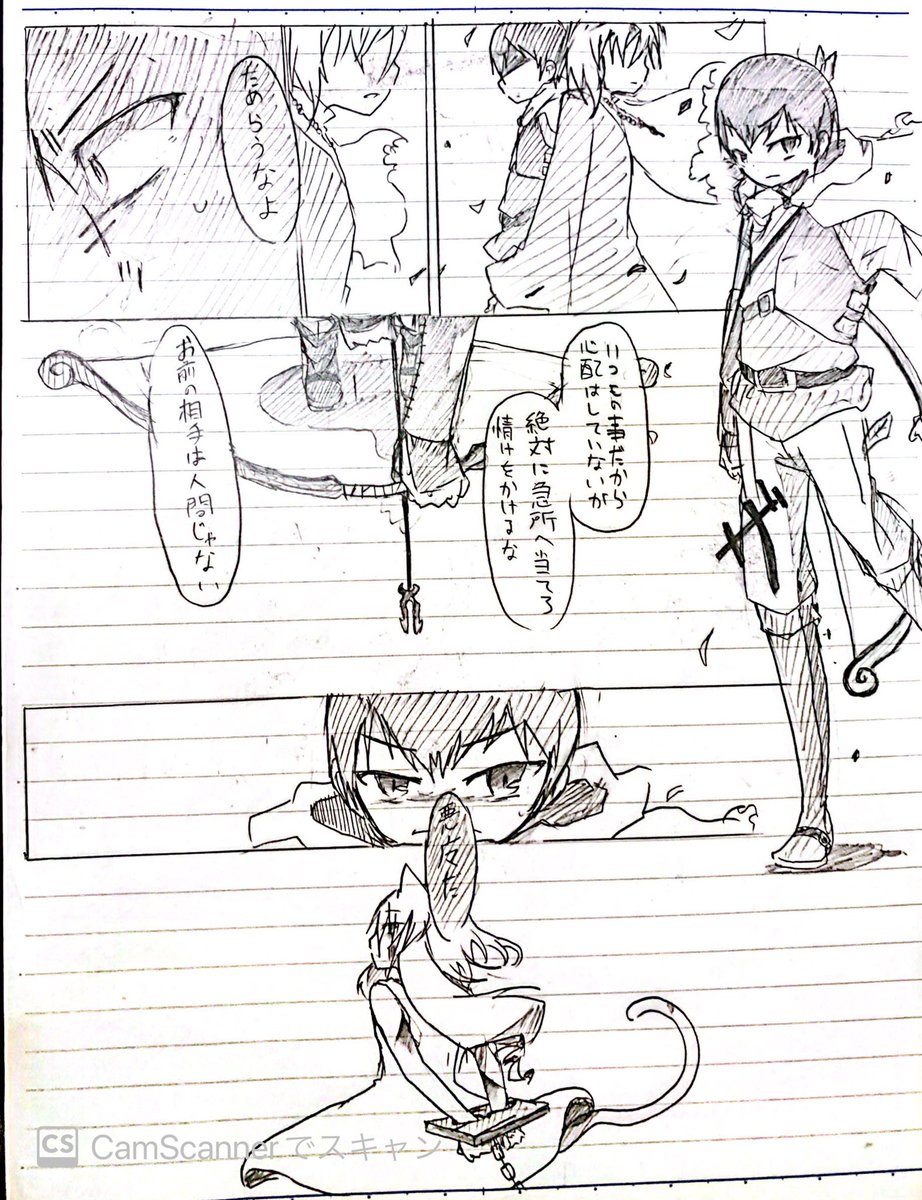 ためらうなよ
いつもの事だから
心配はしていないが
絶対に急所へ当てろ
情けをかけるな
お前の相手は人間じゃない
悪女だ
CS CamScannerでスキャン